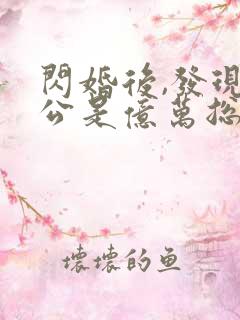 閃婚後,發現
公是億萬
壞壞的魚